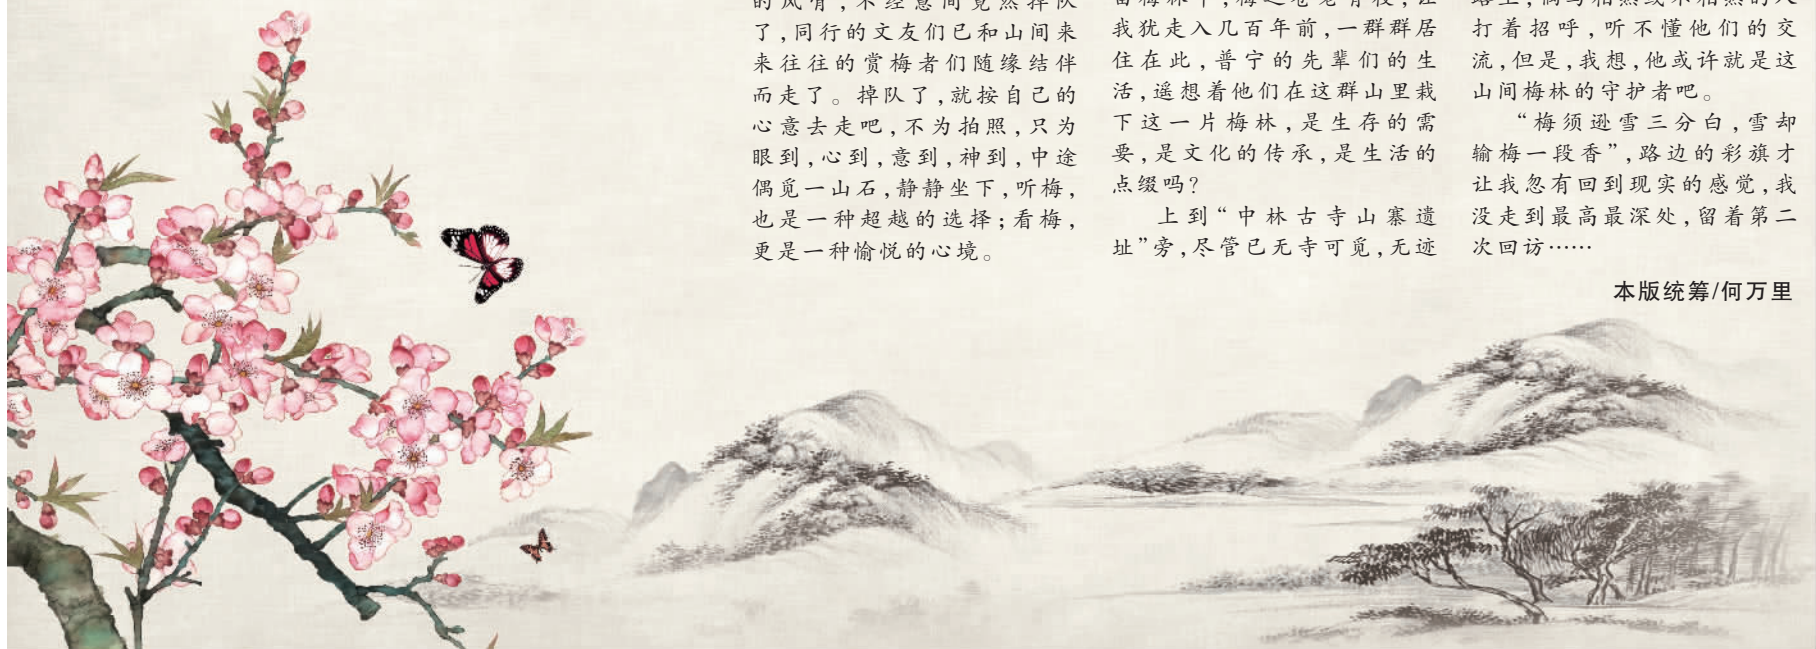 的风骨，不经意间竟然掉队
了，同行的文友们已和山间来
来往往的赏梅者们随缘结伴
而走了。掉队了，就按自己的
心意去走吧，不为拍照，只为
眼到，心到，意到，神到，中途
偶觅一山石，静静坐下，听梅，
也是一种超越的选择；看梅，
更是一种愉悦的心境。
我犹走入几百年前，一群群居
住在此，普宁的先辈们的生
活，遥想着他们在这群山里栽
下这一片梅林，是生存的需
要，是文化的传承，是生活的
点缀吗？
上到“中林古寺山寨遗
址”旁，尽管已无寺可觅，无迹
打着招呼，听不懂他们的交
流，但是，我想，他或许就是这
山间梅林的守护者吧。
“梅须逊雪三分白，雪却
输梅一段香”，路边的彩旗才
让我忽有回到现实的感觉，我
没走到最高最深处，留着第二
次回访……
本版统筹/何万里